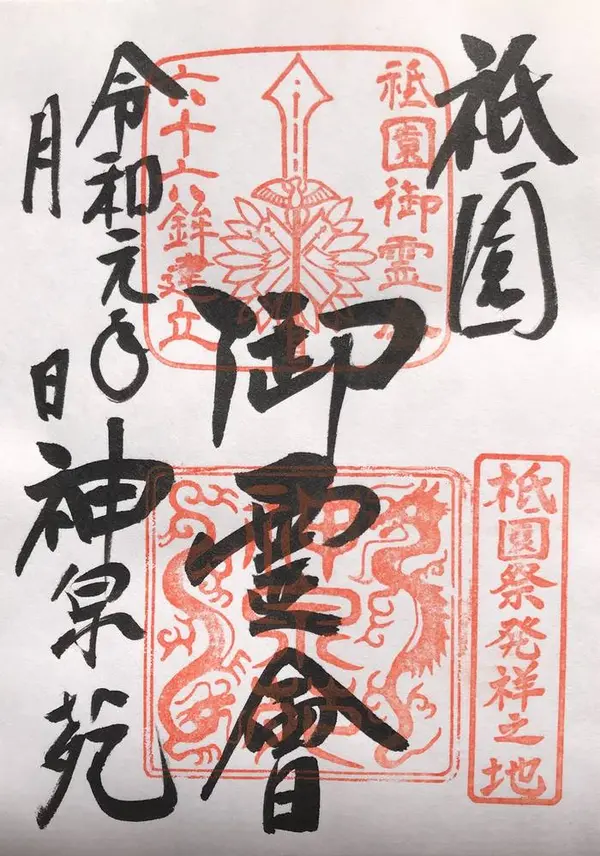 祇園
御霊會
令和元年
月 日
神泉苑
祇園御霊会
六十六鉾建立
神泉苑
祇園祭発祥之地